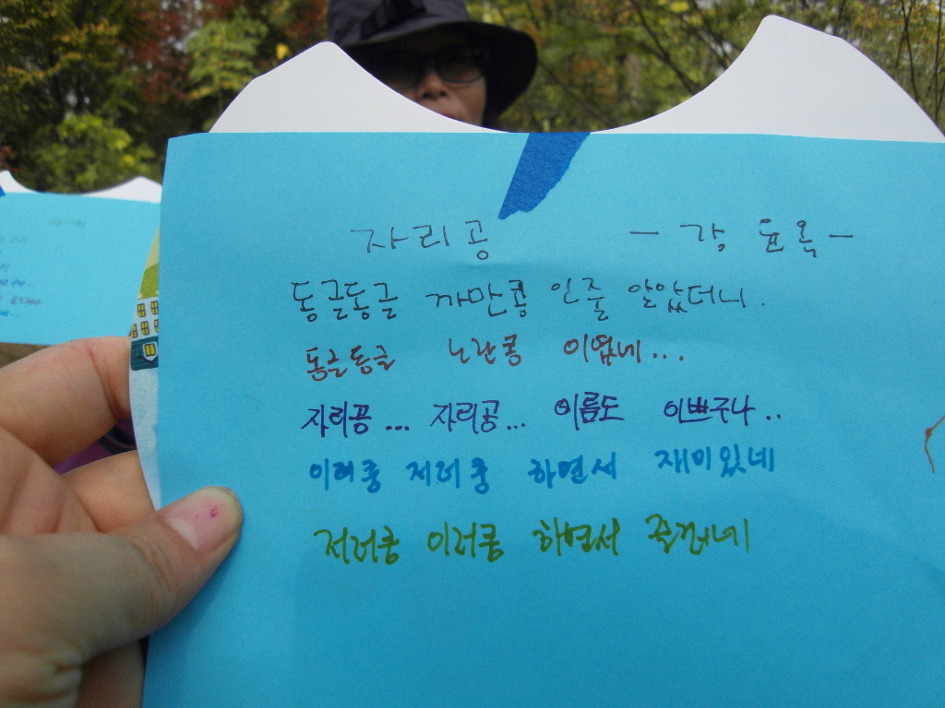 자리공 - 강윤록 -
동글동글 까만콩 인줄 알았더니.
동글동글 노란콩 이였네...
자리공... 자리공... 이름도 이쁘구나..
이러쿵 저러쿵 하면서 재미있네
저러쿵 이러쿵 하면서 즐겁네